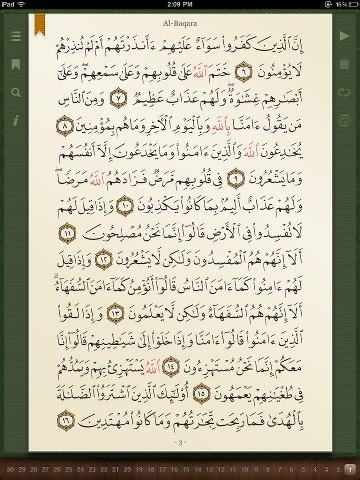 iPad 2:09 PM 39%
Al-Baqara
إِنَّ ٱلَّذِينَ كَفَرُوا۟ سَوَآءٌ عَلَيْهِمْ ءَأَنذَرْتَهُمْ أَمْ لَمْ تُنذِرْهُمْ
لَا يُؤْمِنُونَ ٦ خَتَمَ ٱللَّهُ عَلَىٰ قُلُوبِهِمْ وَعَلَىٰ سَمْعِهِمْ ۖ وَعَلَىٰٓ
أَبْصَـٰرِهِمْ غِشَـٰوَةٌ ۖ وَلَهُمْ عَذَابٌ عَظِيمٌ ٧ وَمِنَ ٱلنَّاسِ
مَن يَقُولُ ءَامَنَّا بِٱللَّهِ وَبِٱلْيَوْمِ ٱلْـَٔاخِرِ وَمَا هُم بِمُؤْمِنِينَ ٨
يُخَـٰدِعُونَ ٱللَّهَ وَٱلَّذِينَ ءَامَنُوا۟ وَمَا يَخْدَعُونَ إِلَّآ أَنفُسَهُمْ
وَمَا يَشْعُرُونَ ٩ فِى قُلُوبِهِم مَّرَضٌ فَزَادَهُمُ ٱللَّهُ مَرَضًا ۖ
وَلَهُمْ عَذَابٌ أَلِيمٌۢ بِمَا كَانُوا۟ يَكْذِبُونَ ١٠ وَإِذَا قِيلَ لَهُمْ
لَا تُفْسِدُوا۟ فِى ٱلْأَرْضِ قَالُوٓا۟ إِنَّمَا نَحْنُ مُصْلِحُونَ ١١
أَلَآ إِنَّهُمْ هُمُ ٱلْمُفْسِدُونَ وَلَـٰكِن لَّا يَشْعُرُونَ ١٢ وَإِذَا قِيلَ
لَهُمْ ءَامِنُوا۟ كَمَآ ءَامَنَ ٱلنَّاسُ قَالُوٓا۟ أَنُؤْمِنُ كَمَآ ءَامَنَ ٱلسُّفَهَآءُ ۗ
أَلَآ إِنَّهُمْ هُمُ ٱلسُّفَهَآءُ وَلَـٰكِن لَّا يَعْلَمُونَ ١٣ وَإِذَا لَقُوا۟
ٱلَّذِينَ ءَامَنُوا۟ قَالُوٓا۟ ءَامَنَّا وَإِذَا خَلَوْا۟ إِلَىٰ شَيَـٰطِينِهِمْ قَالُوٓا۟ إِنَّا
مَعَكُمْ إِنَّمَا نَحْنُ مُسْتَهْزِءُونَ ١٤ ٱللَّهُ يَسْتَهْزِئُ بِهِمْ وَيَمُدُّهُمْ
فِى طُغْيَـٰنِهِمْ يَعْمَهُونَ ١٥ أُو۟لَـٰٓئِكَ ٱلَّذِينَ ٱشْتَرَوُا۟ ٱلضَّلَـٰلَةَ
بِٱلْهُدَىٰ فَمَا رَبِحَت تِّجَـٰرَتُهُمْ وَمَا كَانُوا۟ مُهْتَدِينَ ١٦
- 3 -
30 29 28 27 26 25 24 23 22 21 20 19 18 17 16 15 14 13 12 11 10 9 8 7 6 5 4 3 2 1